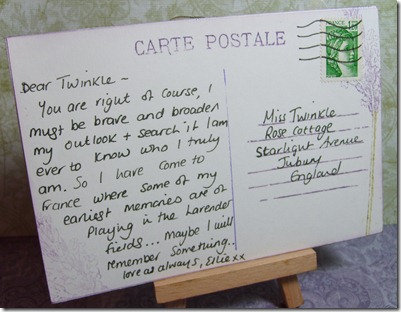 CARTE POSTALE
Dear Twinkle ~
You are right of course, I
must be brave and broaden
my outlook + search if I am
ever to know who I truly
am. So I have come to
France where some of my
earliest memories are of
playing in the lavender
fields... Maybe I will
remember something..
love as always, Ellie xx
FRANCE
Miss Twinkle
Rose Cottage
Starlight Avenue
England